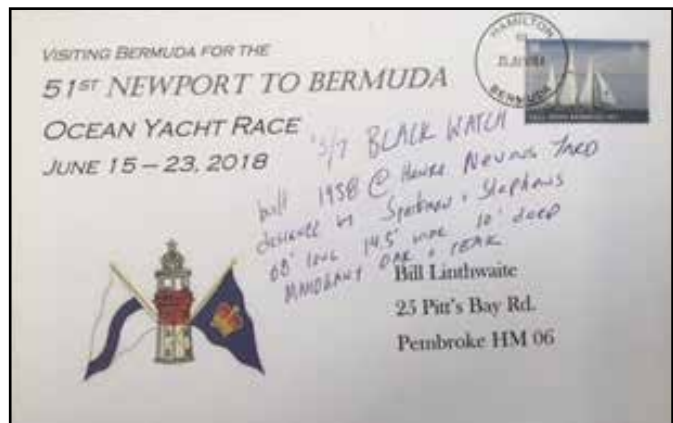 VISITING BERMUDA FOR THE
51ST NEWPORT TO BERMUDA
OCEAN YACHT RACE
JUNE 15 – 23, 2018
HAMILTON
BERMUDA
S/Y BLACK WATCH
built 1938 @ Henry Nevins YARD
designed by Sparkman & Stephens
68' long 14.5' wide 10' deep
MAHOGANY OAK & TEAK
Bill Linthwaite
25 Pitt's Bay Rd.
Pembroke HM 06